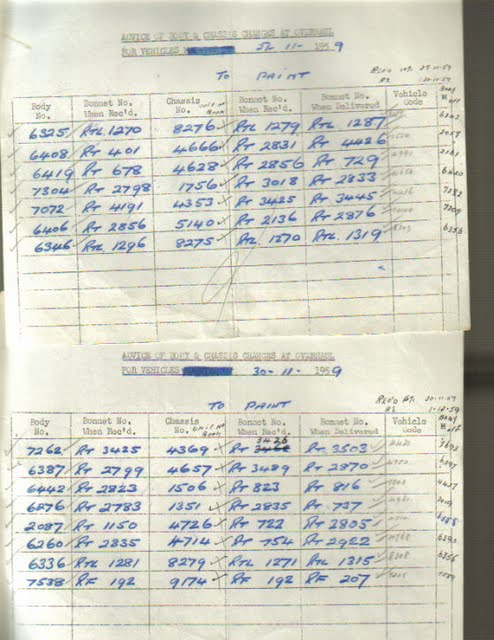 ADVICE OF BODY & CHASSIS CHANGES AT OVERHAUL
FOR VEHICLES 11 - 1959
TO PAINT
Body No. Bonnet No. When Rec'd. Chassis No. Bonnet No. When Rec'd. Bonnet No. When Delivered Vehicle Code Body
6325 RTL 1270 8276 RTL 1279 RTL 1287
6408 RT 401 4666 RT 2831 RT 4426
6419 RT 678 4628 RT 2856 RT 729
7304 RT 2798 1756 RT 3018 RT 2833
7072 RT 4191 4353 RT 3425 RT 3445
6406 RT 2856 5140 RT 2136 RT 2876
6346 RTL. 1296 8275 RTL. 1270 RTL. 1319 6356
ADVICE OF BODY & CHASSIS CHANGES AT OVERHAUL
FOR VEHICLES 30 - 11 - 1959
TO PAINT
Body No. Bonnet No. When Rec'd. Chassis No. Bonnet No. When Rec'd. Bonnet No. When Delivered Vehicle Code Body
7262 RT 3425 4369 RT 3426 RT 3503
6387 RT 2799 4657 RT 3489 RT 2870
6442 RT 2823 1506 RT 823 RT 816
6876 RT 2783 1351 RT 2835 RT 737
2087 RT 1150 4726 RT 722 RT 2805
6260 RT 2835 4714 RT 754 RT 2922
6336 RTL 1281 8279 RTL 1271 RTL 1315 6356
7538 RF 192 9174 RF 192 RF 207